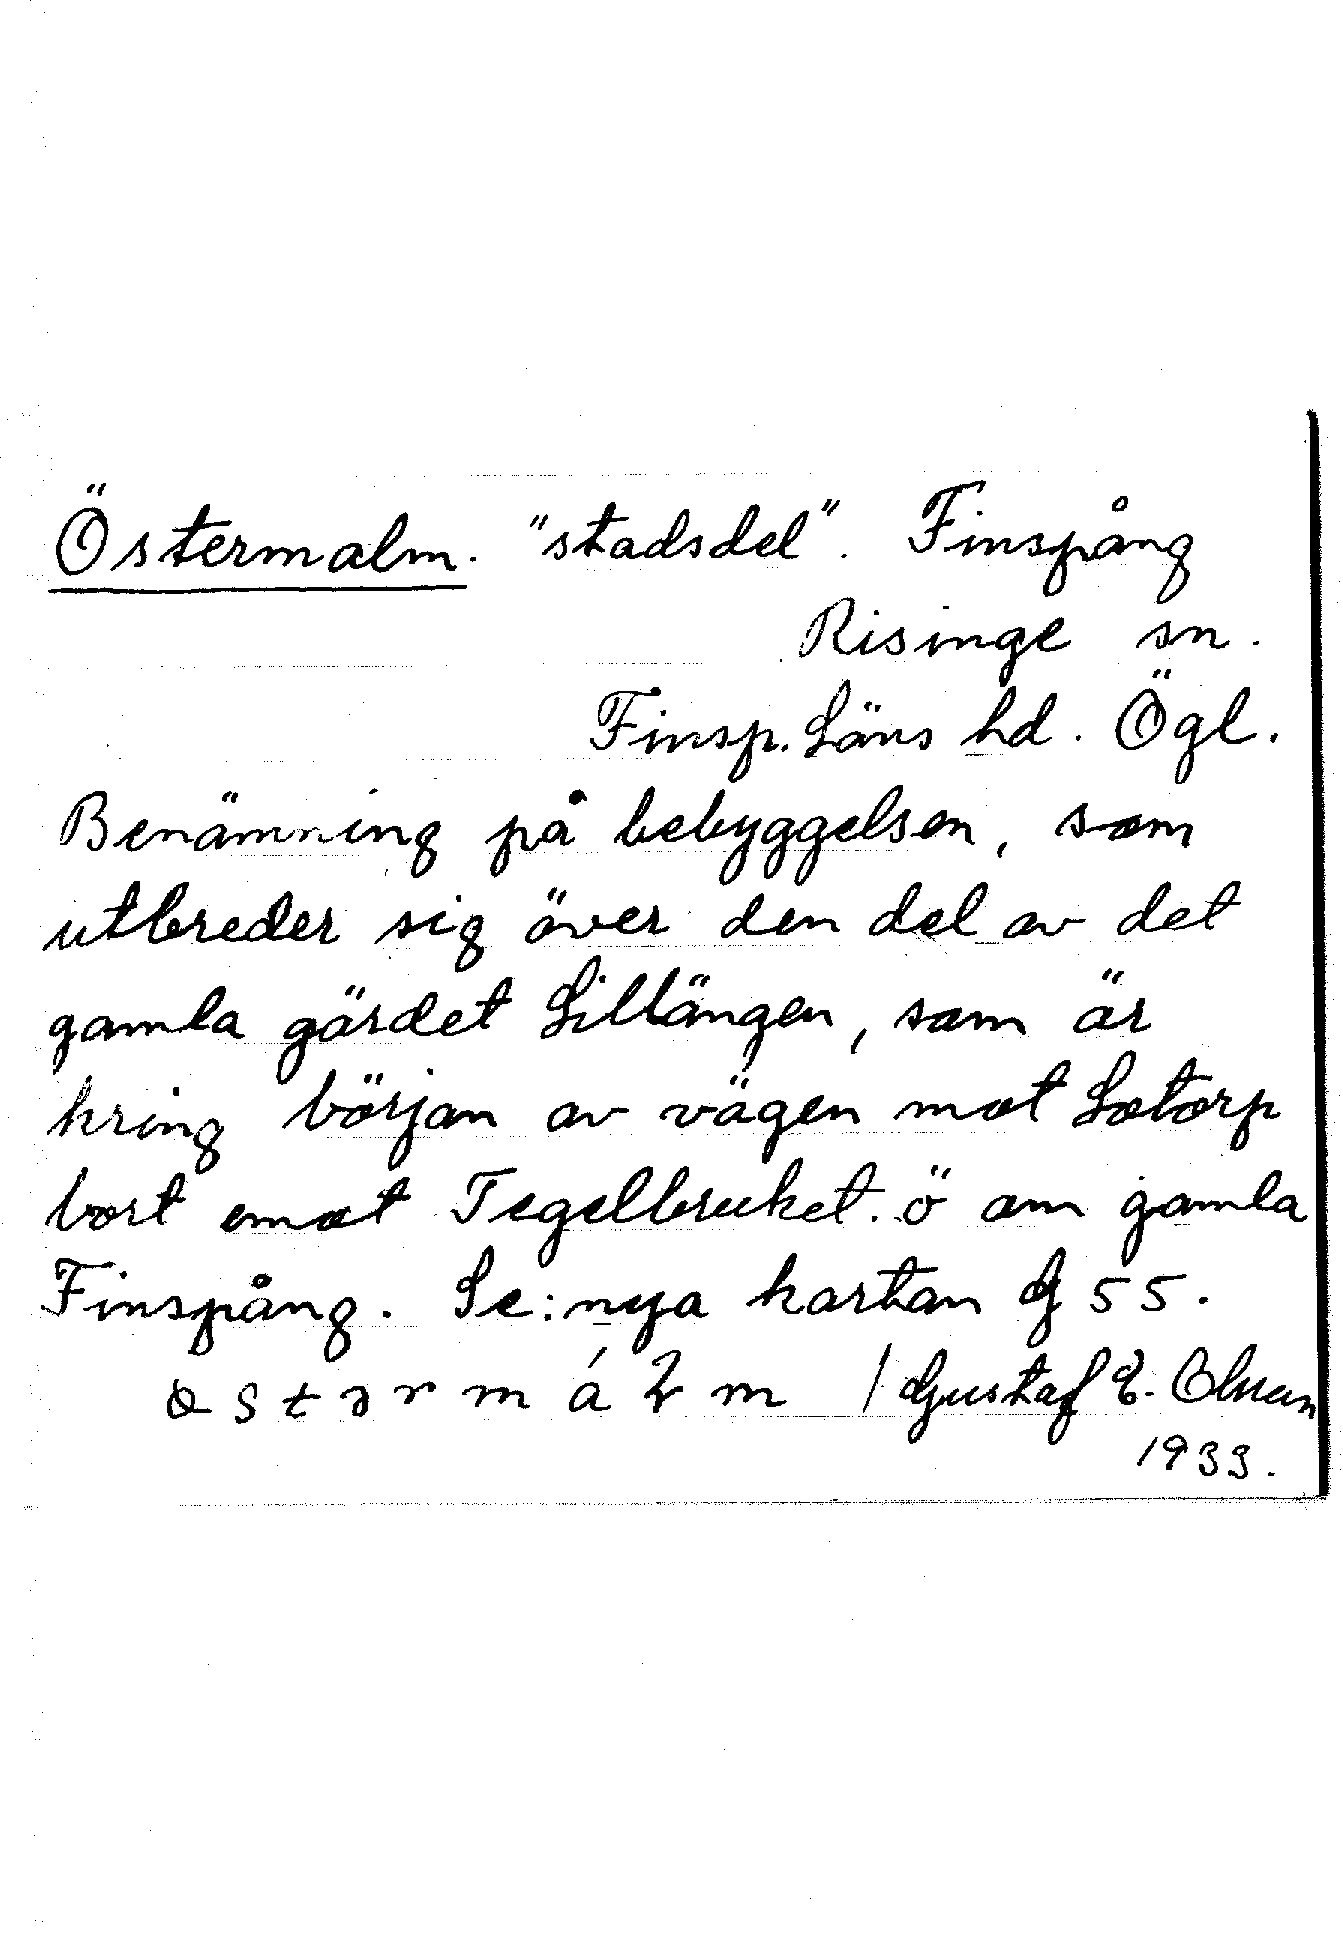 Östermalm. "stadsdel". Finspång
Risinge sn.
Finsp. Läns hd. Ögl.
Benämning på bebyggelsen, som
utbreder sig över den del av det
gamla gärdet Lillängen, som är
kring början av vägen mot Lotorp
bort emot Tegelbruket. ö om gamla
Finspång. Se: nya kartan G 55.
m á m / Gustaf E. Olsson
1933.